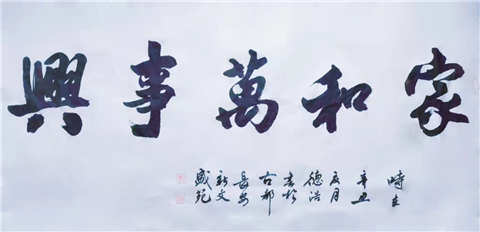 家和萬事興
時在
辛丑
月
德浩
書於
古都
長安
新文